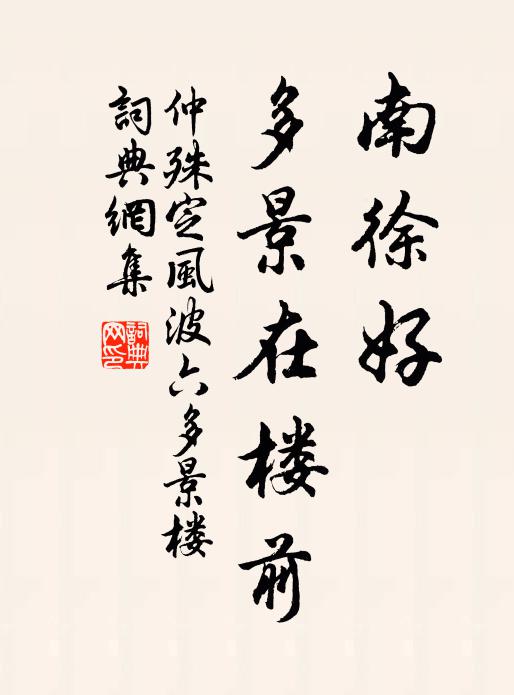 南徐好
多景在楼前
仲殊定風波六多景楼
詞典網集
詞典網印